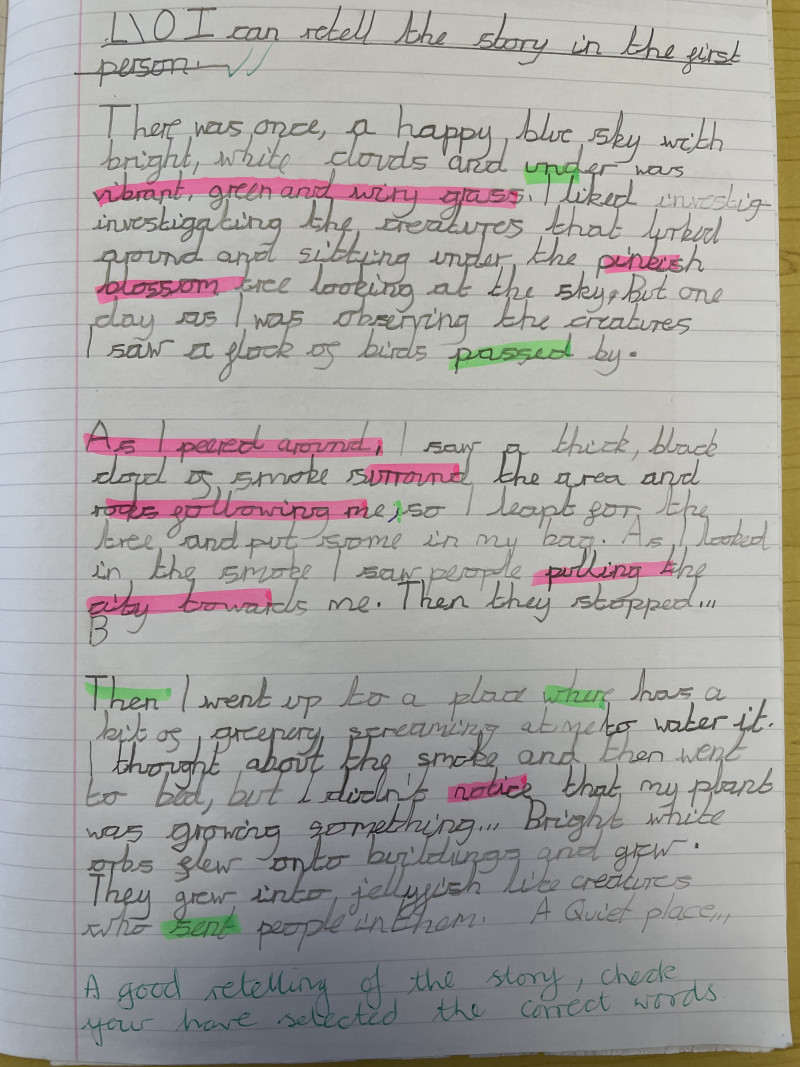 L\O I can retell the story in the first
person.
There was once, a happy blue sky with
bright, white clouds and under was
vibrant, green and wiry grass. I liked investig-
investigating the creatures that lurked
around and sitting under the pinkish
blossom tree looking at the sky. But one
day as I was observing the creatures
I saw a flock of birds passed by.
As I peered around, I saw a thick, black
cloud of smoke surround the area and
rocks following me, so I leapt for the
tree and put some in my bag. As I looked
in the smoke I saw people pulling the
city towards me. Then they stopped...
B
Then I went up to a place where has a
bit of greenery screaming at me to water it.
I thought about the smoke and then went
to bed, but I didn't notice that my plant
was growing something... Bright white
orbs flew onto buildings and grew.
They grew into jellyfish like creatures
who sent people in them. A Quiet place...
A good retelling of the story, check
your have selected the correct words